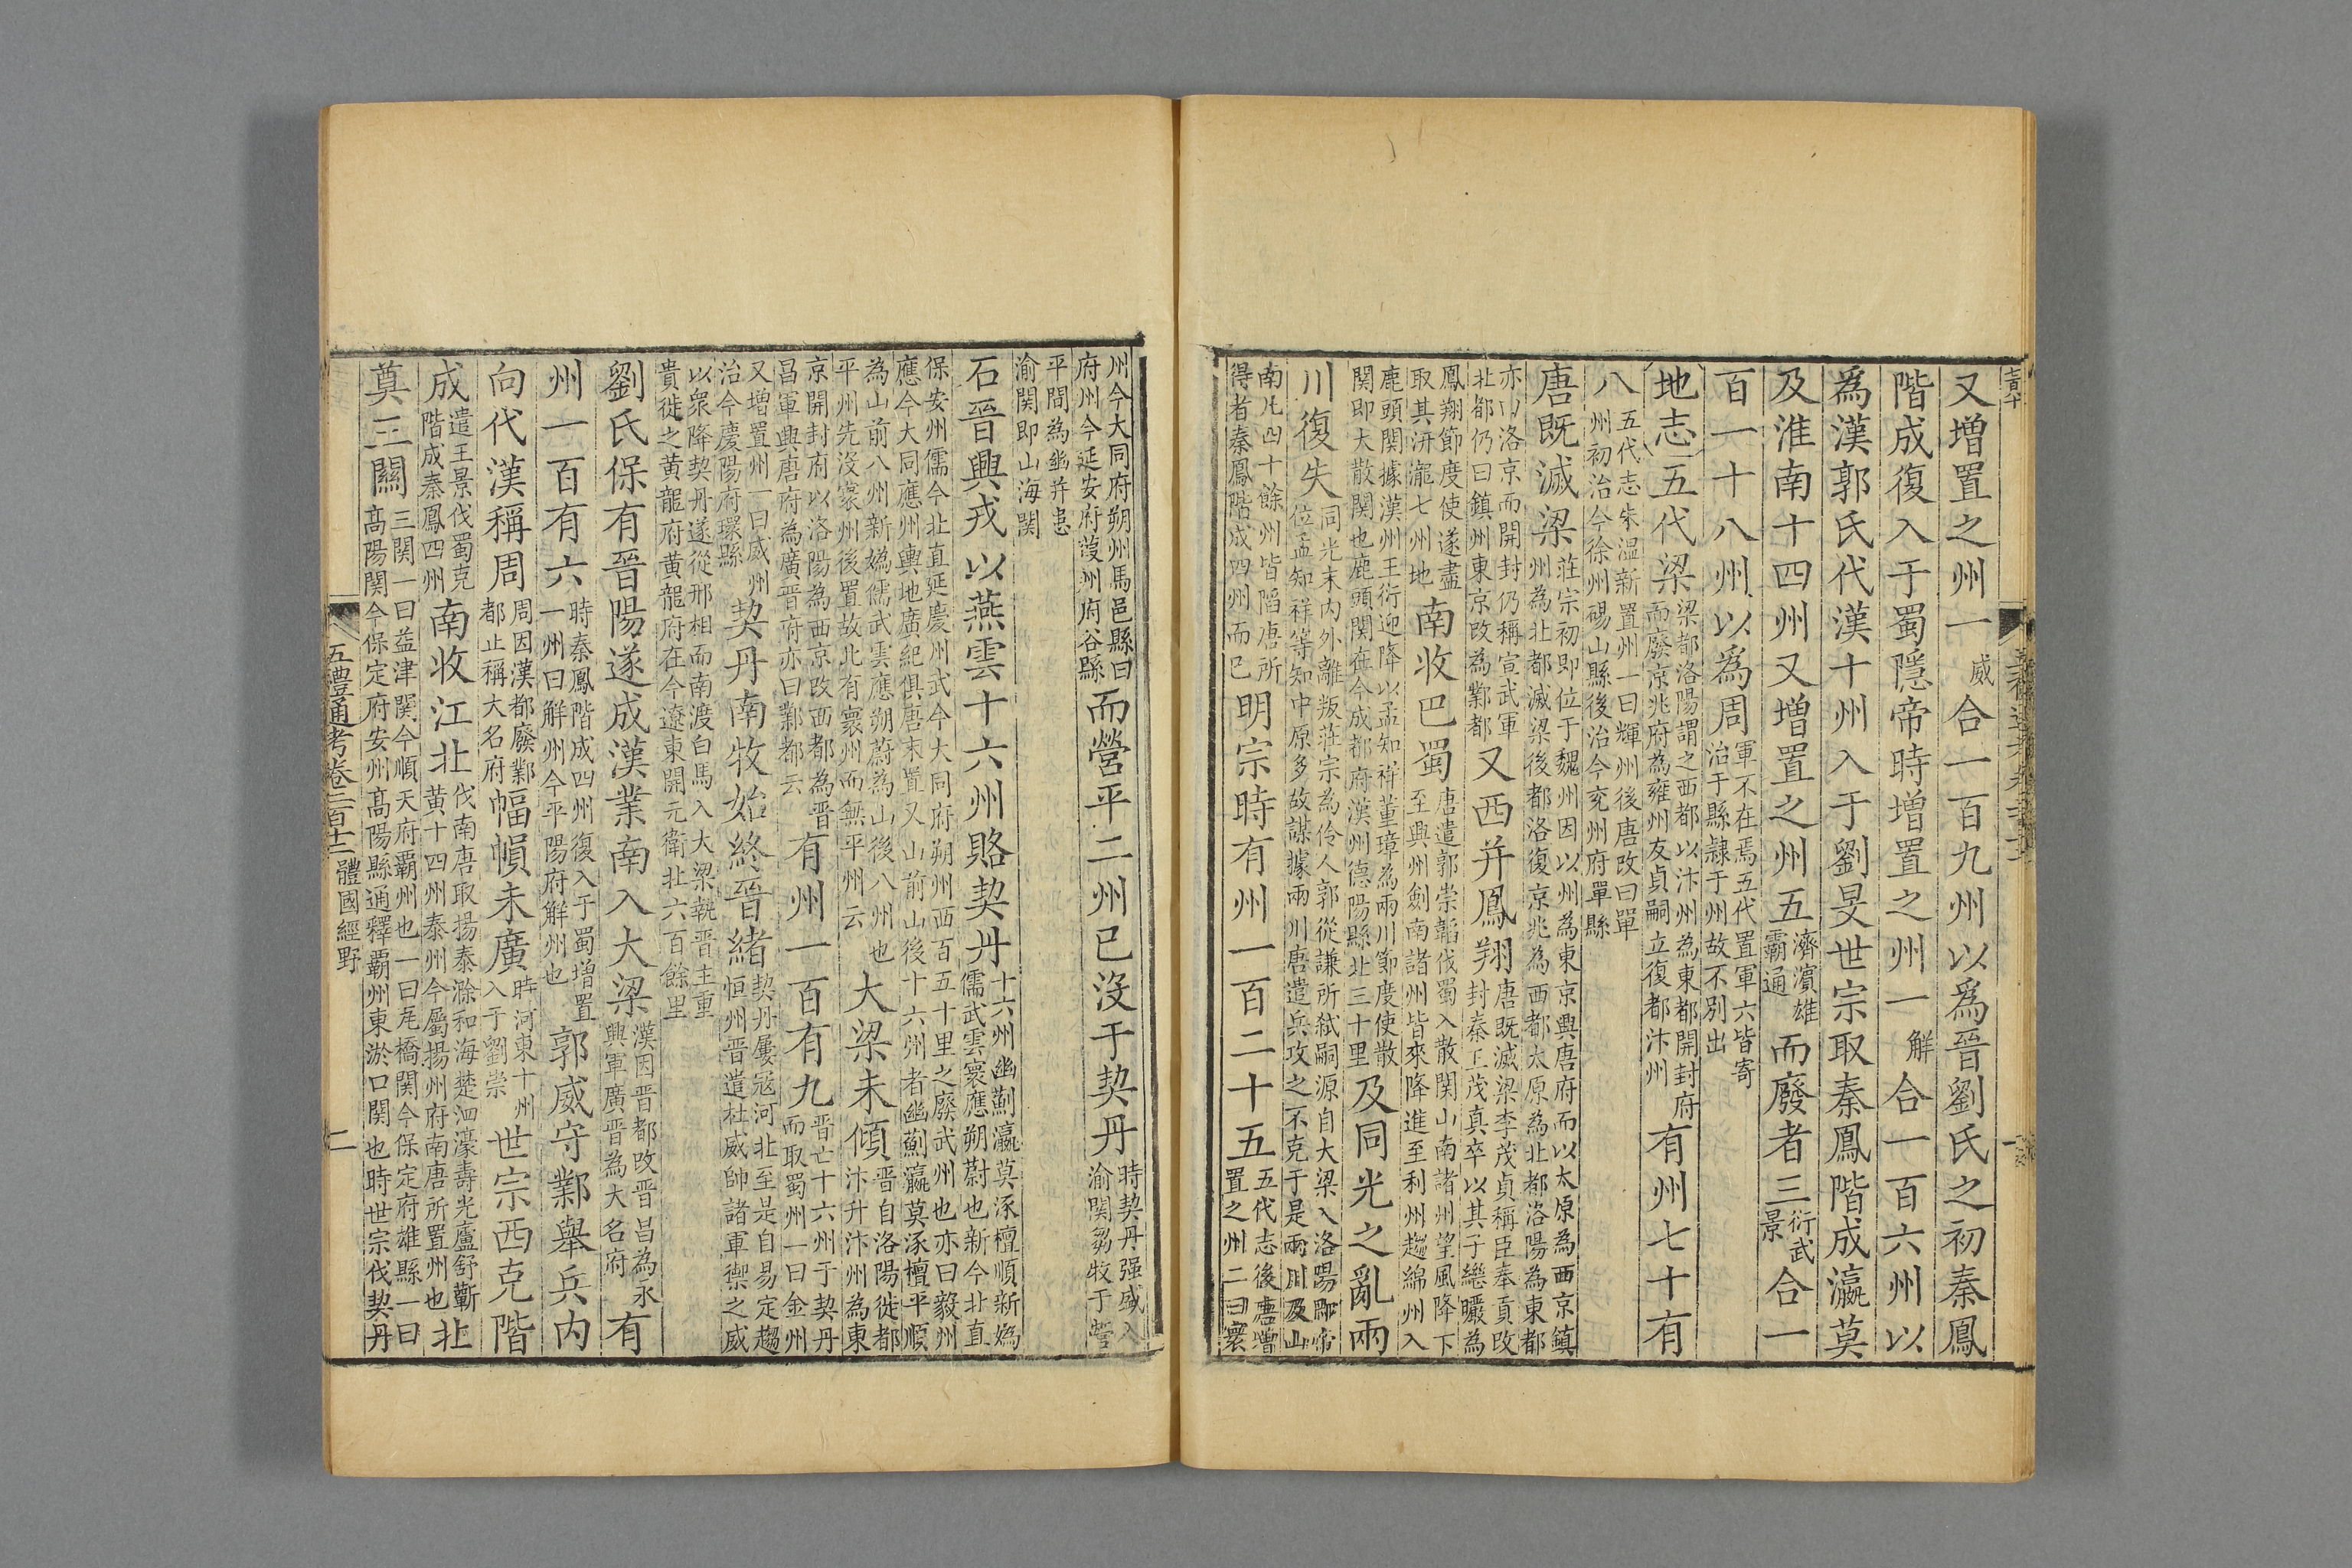 又增置之州一威合一百九州以爲晉劉氏之初秦鳳
階成復入于蜀隱帝時增置之州一解合一百六州以
爲漢郭氏代漢十州入于劉旻世宗取秦鳳階成瀛莫
及淮南十四州又增置之州五濟濱雄霸通而廢者三衍武景合一
百一十八州以爲周軍不在焉五代置軍六皆寄治于縣隷于州故不別出
地志五代梁梁都洛陽謂之西都以汴州為東都開封府而廢京兆府為雍州友貞嗣立復都汴州有州七十有
八五代志朱温新置州一曰輝州後唐改曰單州初治今徐州碭山縣後治今兖州府單縣
唐既滅梁莊宗初即位于魏州因以州為東京興唐府而以太原為西京鎮州為北都滅梁後都洛復京兆為西都太原為北都洛陽為東都
亦以洛京而開封仍稱宣武軍北都仍曰鎮州東京改為鄴都又西并鳳翔唐既滅梁李茂貞稱臣奉貢改封秦王茂真卒以其子繼曮為
鳳翔節度使遂盡取其汧瀧七州地南收巴蜀唐遣郭崇韜伐蜀入散関山南諸州望風降下至興州劍南諸州皆來降進至利州趨綿州入
鹿頭関據漢州王衍迎降以孟知祥董璋為兩川節度使散関即大散関也鹿頭関在今成都府漢州德陽縣北三十里及同光之亂兩
川復失同光末内外離叛莊宗為伶人郭從謙所弑嗣源自大梁入洛陽即帝位孟知祥等知中原多故謀據兩川唐遣兵攻之不克于是兩川及山
南北四十餘州皆陷唐所得者秦鳳階成四州而已明宗時有州一百二十五五代志後唐增置之州二曰寰
州今大同府朔州馬邑縣曰府州今延安府葭州府谷縣而營平二州已没于契丹時契丹强盛入渝関芻牧于營
平間為幽并患渝関即山海関
石晉興戎以燕雲十六州賂契丹十六州幽薊瀛莫涿檀順新媯儒武雲寰應朔蔚也新今北直
保安州儒今北直延慶州武今大同府朔州西百五十里之廢武州也亦曰毅州應今大同應州輿地廣紀俱唐末置又山前山後十六州者幽薊瀛莫涿檀平順
為山前八州新媯儒武雲應朔蔚為山後八州也平州先没寰州後置故北有寰州而無平州云大梁未傾晉自洛陽徙都汴升汴州為東
京開封府以洛陽為西京改西都為晉昌軍興唐府為廣晉府亦曰鄴都云有州一百有九晉亡十六州于契丹而取蜀州一曰金州
又增置州一曰威州治今慶陽府環縣契丹南牧始終晉緒契丹屢寇河北至是自易定趨恒州晉遣杜威帥諸軍禦之威
以衆降契丹遂從邢相而南渡白馬入大梁執晉主重貴徙之黄龍府黄龍府在今遼東開元衛北六百餘里
劉氏保有晉陽遂成漢業南入大梁漢因晉都改晉昌為永興軍廣晉為大名府有
州一百有六時秦鳳階成四州復入于蜀增置一州曰解州今平陽府解州也郭威守鄴舉兵内
向代漢稱周周因漢都廢鄴都止稱大名府幅幀未廣時河東十州入于劉崇世宗西克階
成遣王景伐蜀克階成秦鳳四州南收江北伐南唐取揚泰滁和海楚泗濠壽光廬舒蘄黄十四州泰州今屬揚州府南唐所置州也北
奠三關三関一曰益津関今順天府霸州也一曰瓦橋関今保定府雄縣一曰高陽関今保定府安州高陽縣通釋霸州東淤口関也時世宗伐契丹
五禮通考卷二百十二 體國經野 二